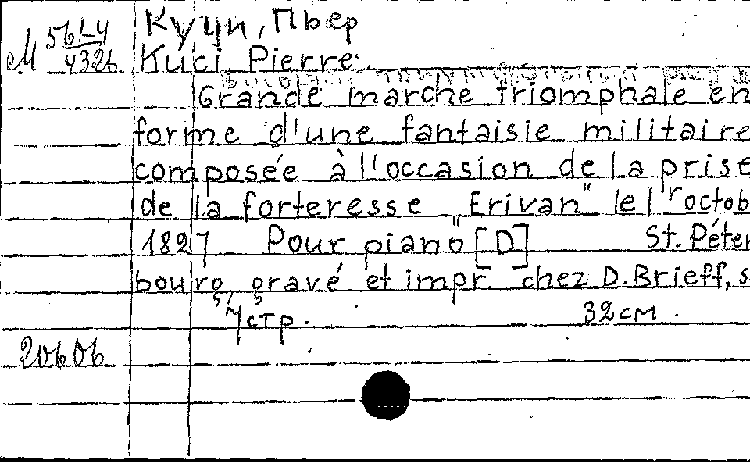 Куци, Пьер
М 561-4/4326
Kuci Pierre.
Grande marche triomphale en
forme d'une fantaisie militaire
composée à l'occasion de la prise
de la forteresse "Erivan" le 1r octob
1827 Pour piano [D] St. Péter
bourg, gravé et impr. chez D. Brieff, s
7 стр. 32 см.